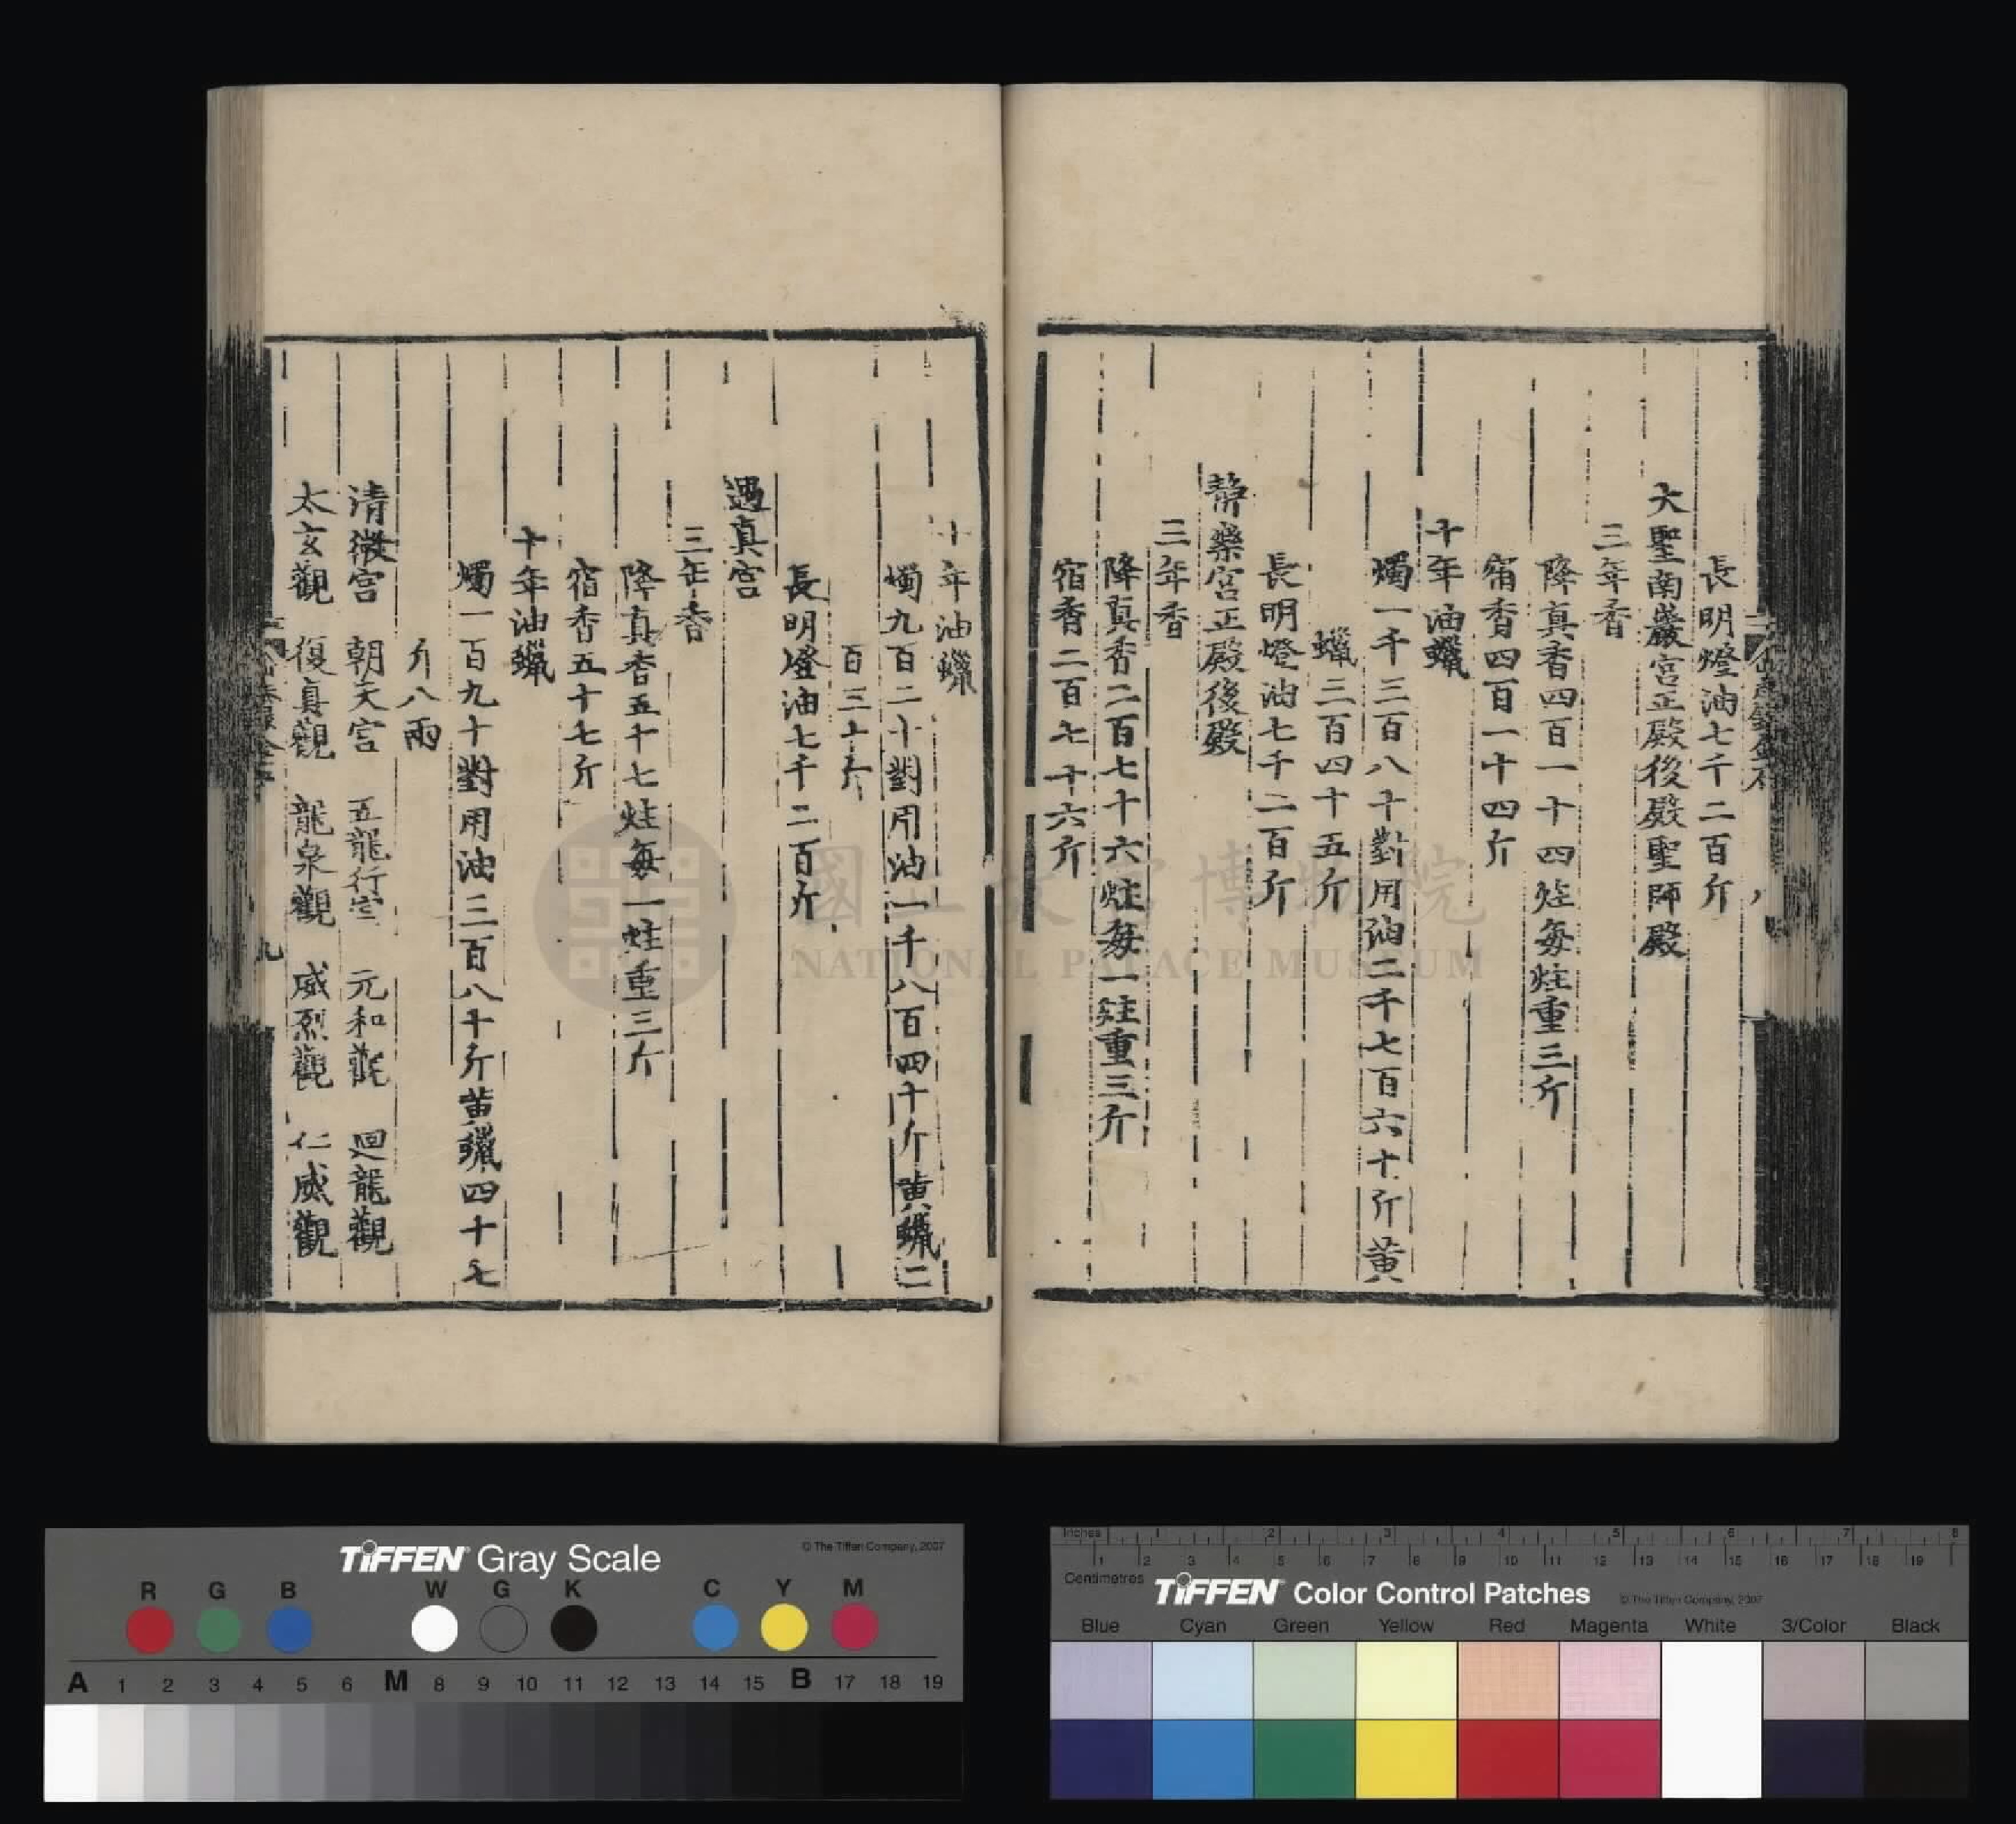 長明燈油七千二百斤
大聖南巖宮正殿後殿聖師殿
三年香
降真香四百一十四炷每炷重三斤
宿香四百一十四斤
十年油蠟
燭一千三百八十對用油二千七百六十斤黄
蠟三百四十五斤
長明燈油七千二百斤
静樂宮正殿後殿
三年香
降真香二百七十六炷每一炷重三斤
宿香二百七十六斤
十年油蠟
燭九百二十對用油一千八百四十斤黄蠟二
百三十斤
長明燈油七千二百斤
遇真宮
三年香
降真香五十七炷每一炷重三斤
宿香五十七斤
十年油蠟
燭一百九十對用油三百八十斤黄蠟四十七
斤八兩
清微宮 朝天宮 五龍行宮 元和觀 迴龍觀
太玄觀 復真觀 龍泉觀 威烈觀 仁威觀
九
國立故宮博物院
NATIONAL PALACE MUSEUM
TIFFEN Gray Scale
© The Tiffen Company, 2007
R G B W G K C Y M
A 1 2 3 4 5 6 M 8 9 10 11 12 13 14 15 B 17 18 19
Inches 1 2 3 4 5 6 7 8
1 2 3 4 5 6 7 8 9 10 11 12 13 14 15 16 17 18 19
Centimetres
TIFFEN Color Control Patches
© The Tiffen Company, 2007
Blue Cyan Green Yellow Red Magenta White 3/Color Black